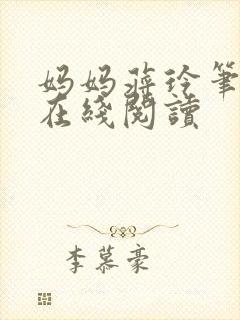 妈妈蒋玲筆
在綫閱讀
李慕豪